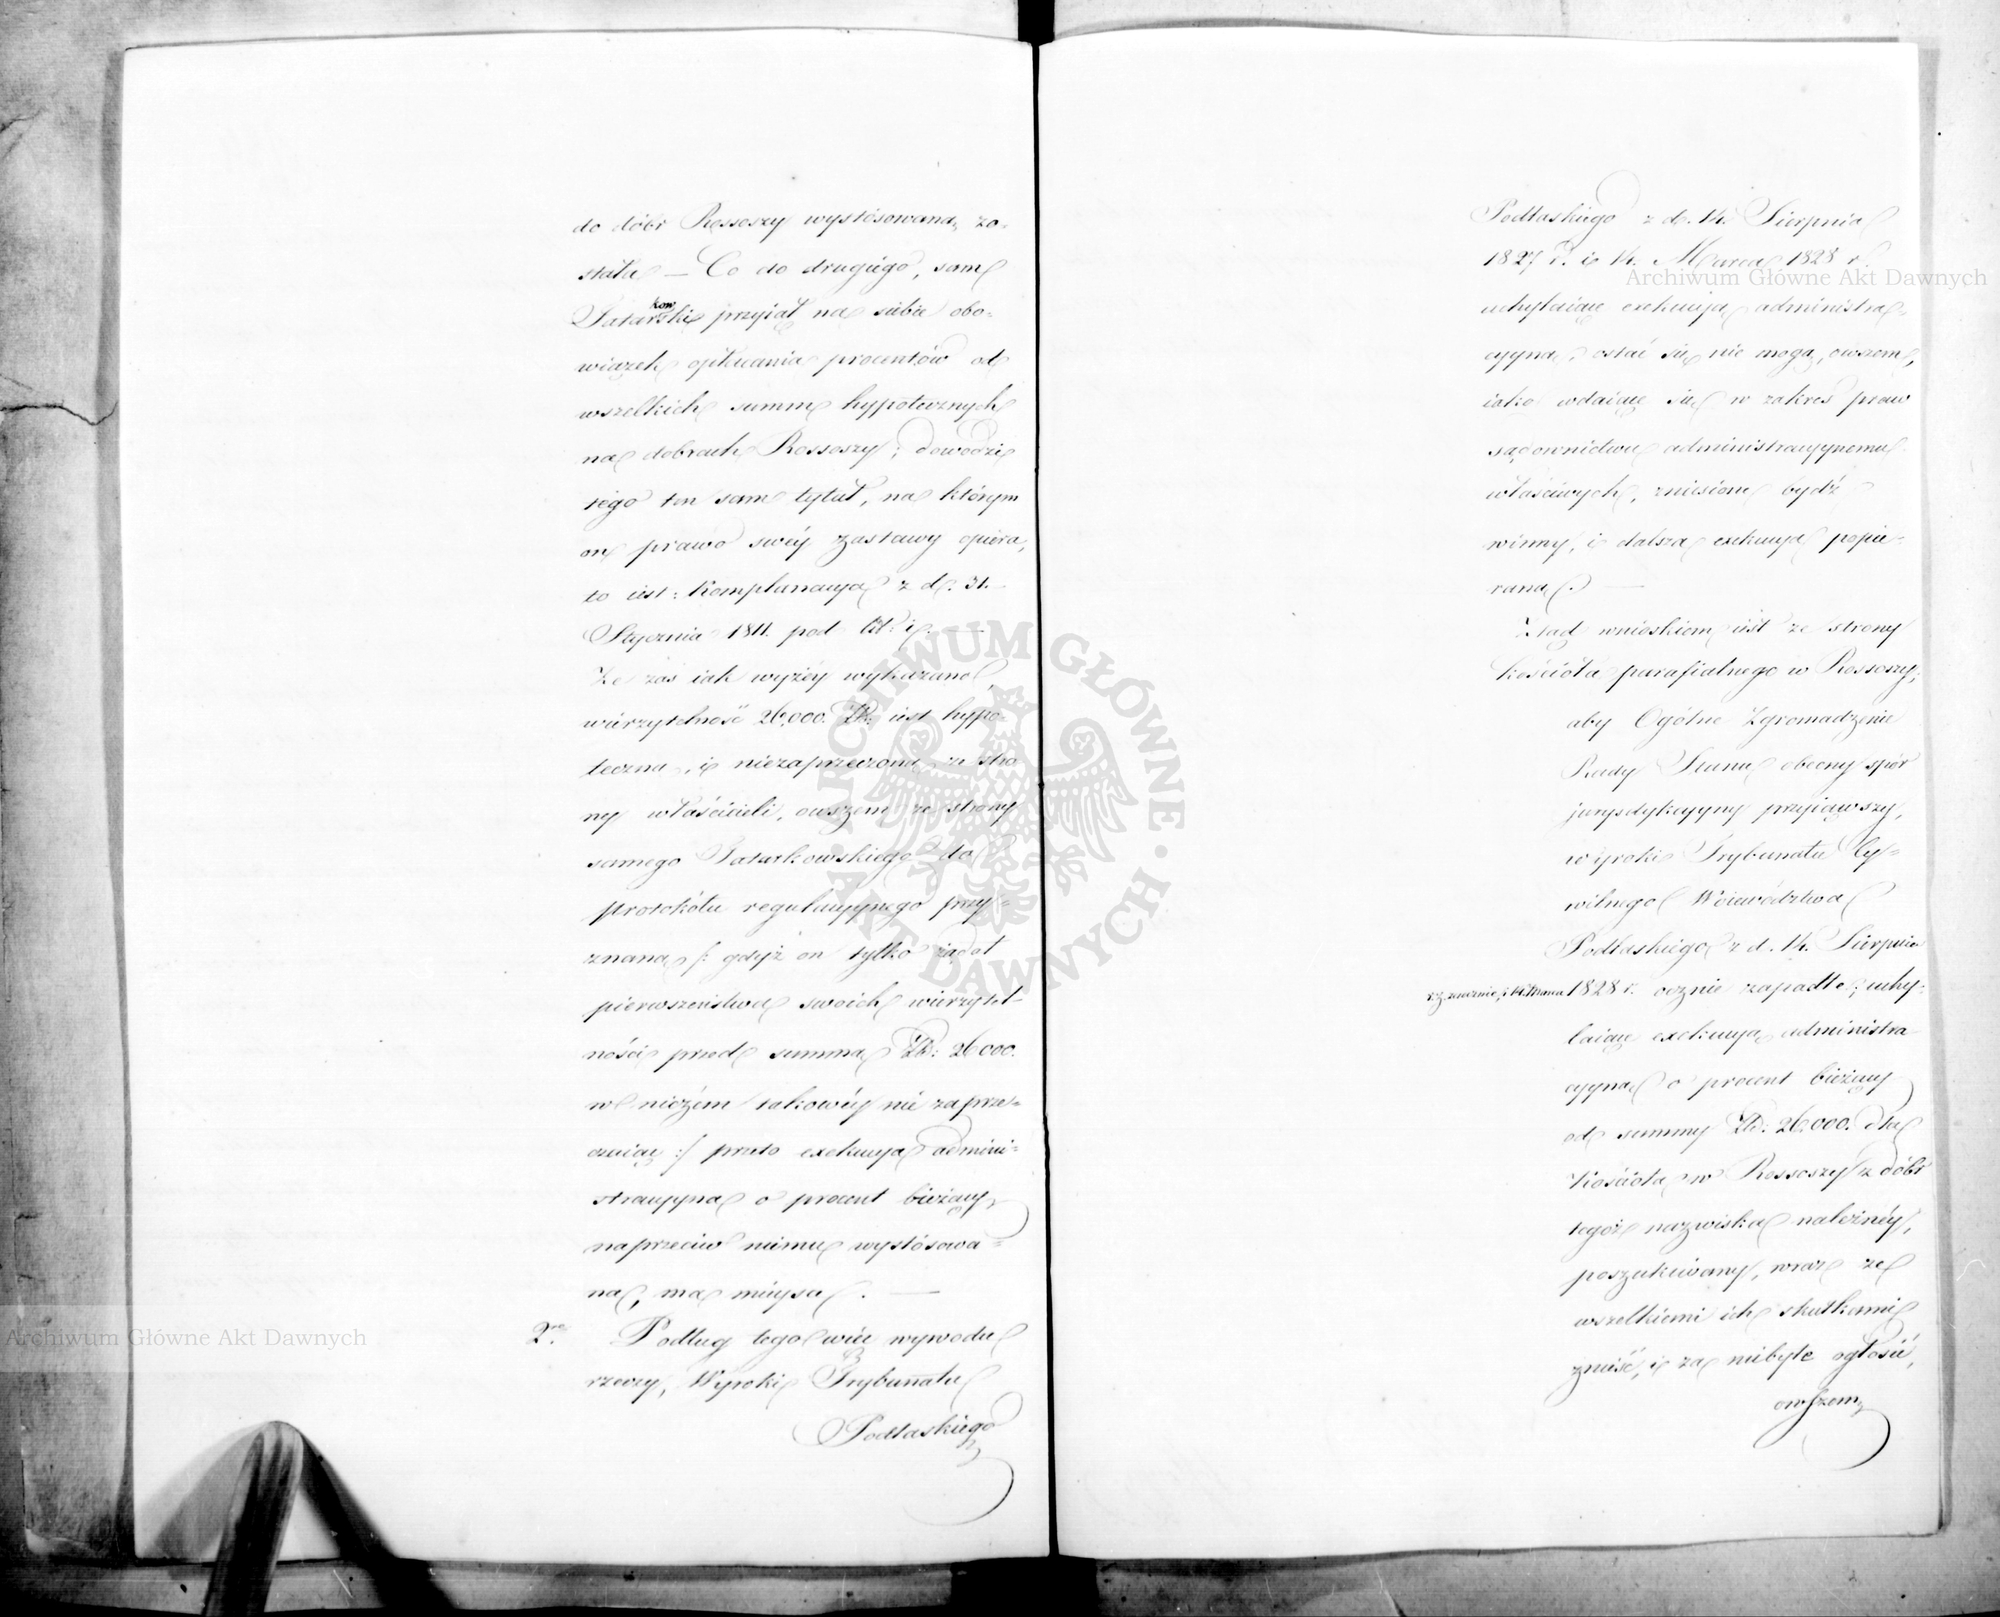 do dóbr Rossoszy wystósowana zo-
stała — Co do drugiego, sam
Tatarkowski przyiął na siebie obo-
wiązek opłacania procentów od
wszelkich summ hypotecznych
na dobrach Rossoszy; dowodzi
tego ten sam tytuł, na którym
on prawo swéy zastawy opiera,
to iest: Komplanacya z d. 31.
Stycznia 1811. pod lit: i. —
Że zaś iak wyżéy wykazano,
wierzytelność 26,000. Złp: iest hypo-
teczna, i niezaprzeczona ze stro
ny właścicieli, owszem ze strony
samego Tatarkowskiego do
protokółu regulacyynego przy-
znana /: gdyż on tylko żądał
pierwszeństwa swoich wierzytel-
ności przed summą Złp: 26000.
w niczém takowéy nie zaprze-
czaiąc :/ przeto exekucya admini-
stracyyna o procent bieżący,
naprzeciw niemu wystósowa-
na, ma mieysce. —
2re. Podług tego więc wywodu
rzeczy, Wyroki Trybunału
Podlaskiego
Podlaskiego z d. 14. Sierpnia
1827 r. i 14. Marca 1828 r.
uchylaiące exekucyą administra-
cyyną, ostać się nie mogą, owszem,
iako wdaiące się w zakres praw
sądownictwu administracyynemu
właściwych, zniesione bydź
winny, i dalsza exekucya popie-
rana. —
Ztąd wnioskiem iest ze strony
Kościoła parafialnego w Rossoszy,
aby Ogólne Zgromadzenie
Rady Stanu obecny spór
jurysdykcyyny przyiąwszy,
wyroki Trybunału Cy-
wilnego Woiewództwa
Podlaskiego z d. 14. Sierpnia
zaocznie, i 14. Marca 1828 r. ocznie zapadłe; uchy-
laiące exekucyą administra
cyyną o procent bieżący
od summy Złp: 26.000. dla
Kościoła w Rossoszy z dóbr
tegoż nazwiska należnéy,
poszukiwany, wraz ze
wszelkiemi ich skutkami
znieść, i za niebyłe ogłosić,
owszem,
Archiwum Główne Akt Dawnych
Archiwum Główne Akt Dawnych
ARCHIWUM GŁÓWNE
AKT DAWNYCH